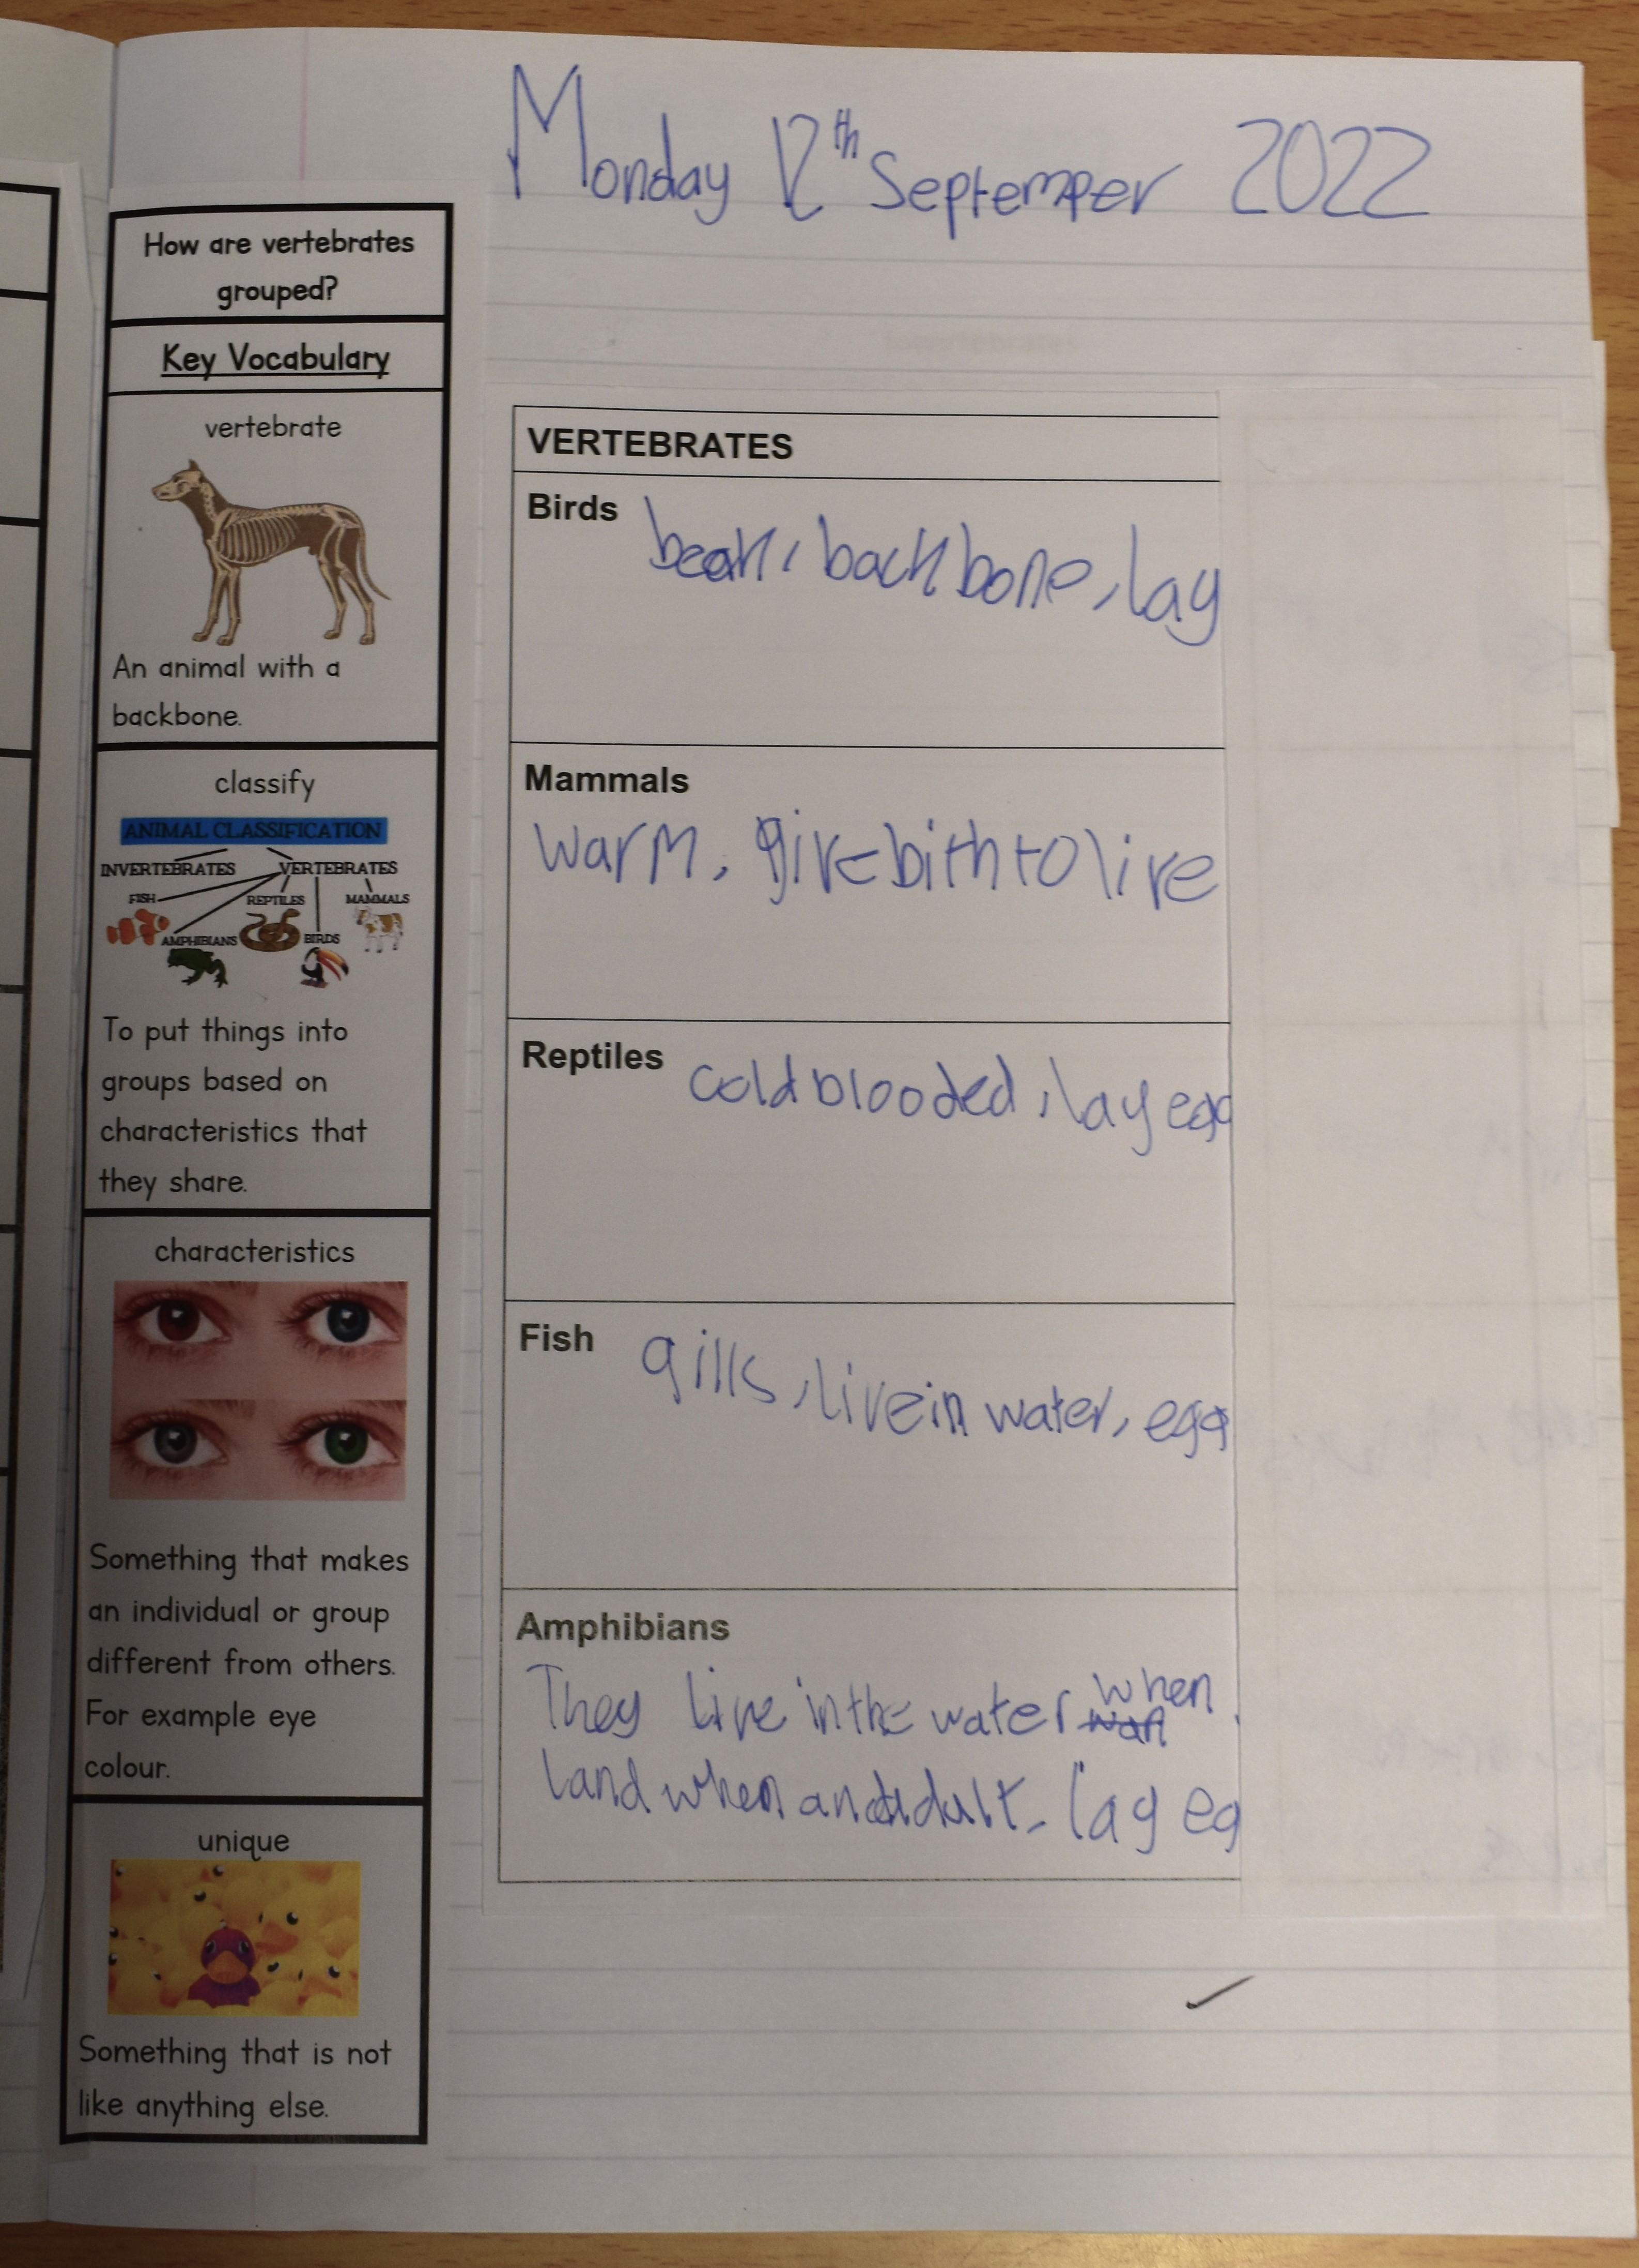 Monday 12th September 2022
How are vertebrates
grouped?
Key Vocabulary
vertebrate
An animal with a
backbone.
classify
ANIMAL CLASSIFICATION
INVERTEBRATES VERTEBRATES
FISH REPTILES MAMMALS
AMPHIBIANS BIRDS
To put things into
groups based on
characteristics that
they share.
characteristics
Something that makes
an individual or group
different from others.
For example eye
colour.
unique
Something that is not
like anything else.
VERTEBRATES
Birds beak, backbone, lay
Mammals
warm, give bith to live
Reptiles cold blooded, lay egg
Fish gills, live in water, egg
Amphibians
They live in the water when
land when an adult. lay eg